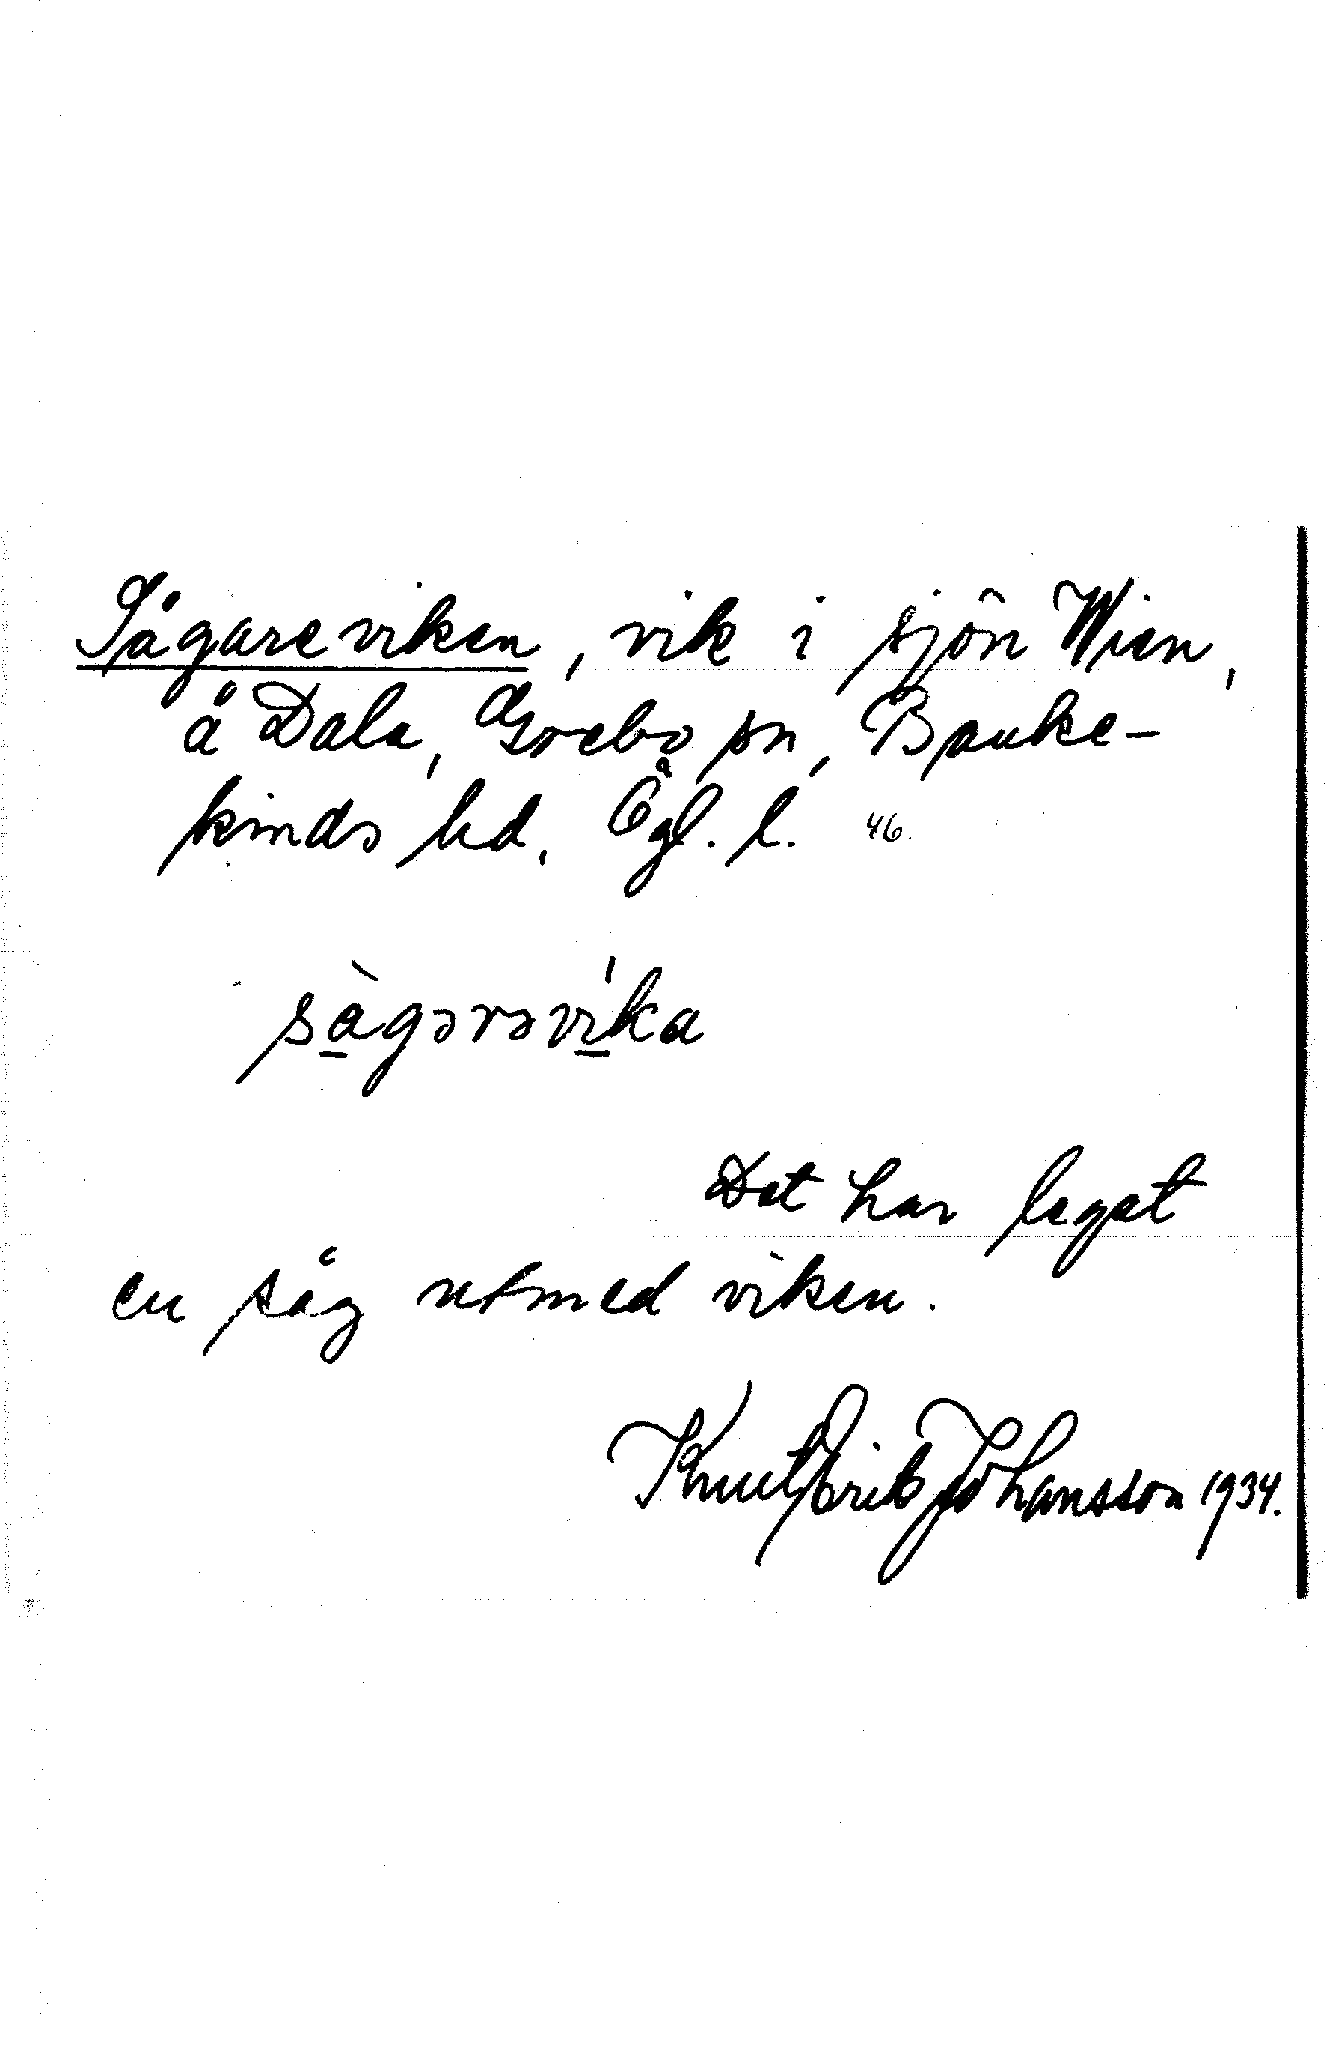 Sågareviken, vik i sjön Wien,
å Dala, Grebo sn, Banke-
kinds hd. Ögl. l. 46.
sàgərəvi̍ka
Det har legat
en såg utmed viken.
Knut Erik Johansson 1934.